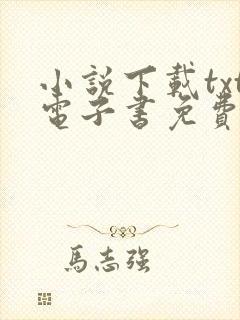 小説下載txt
電子書免費
馬志強